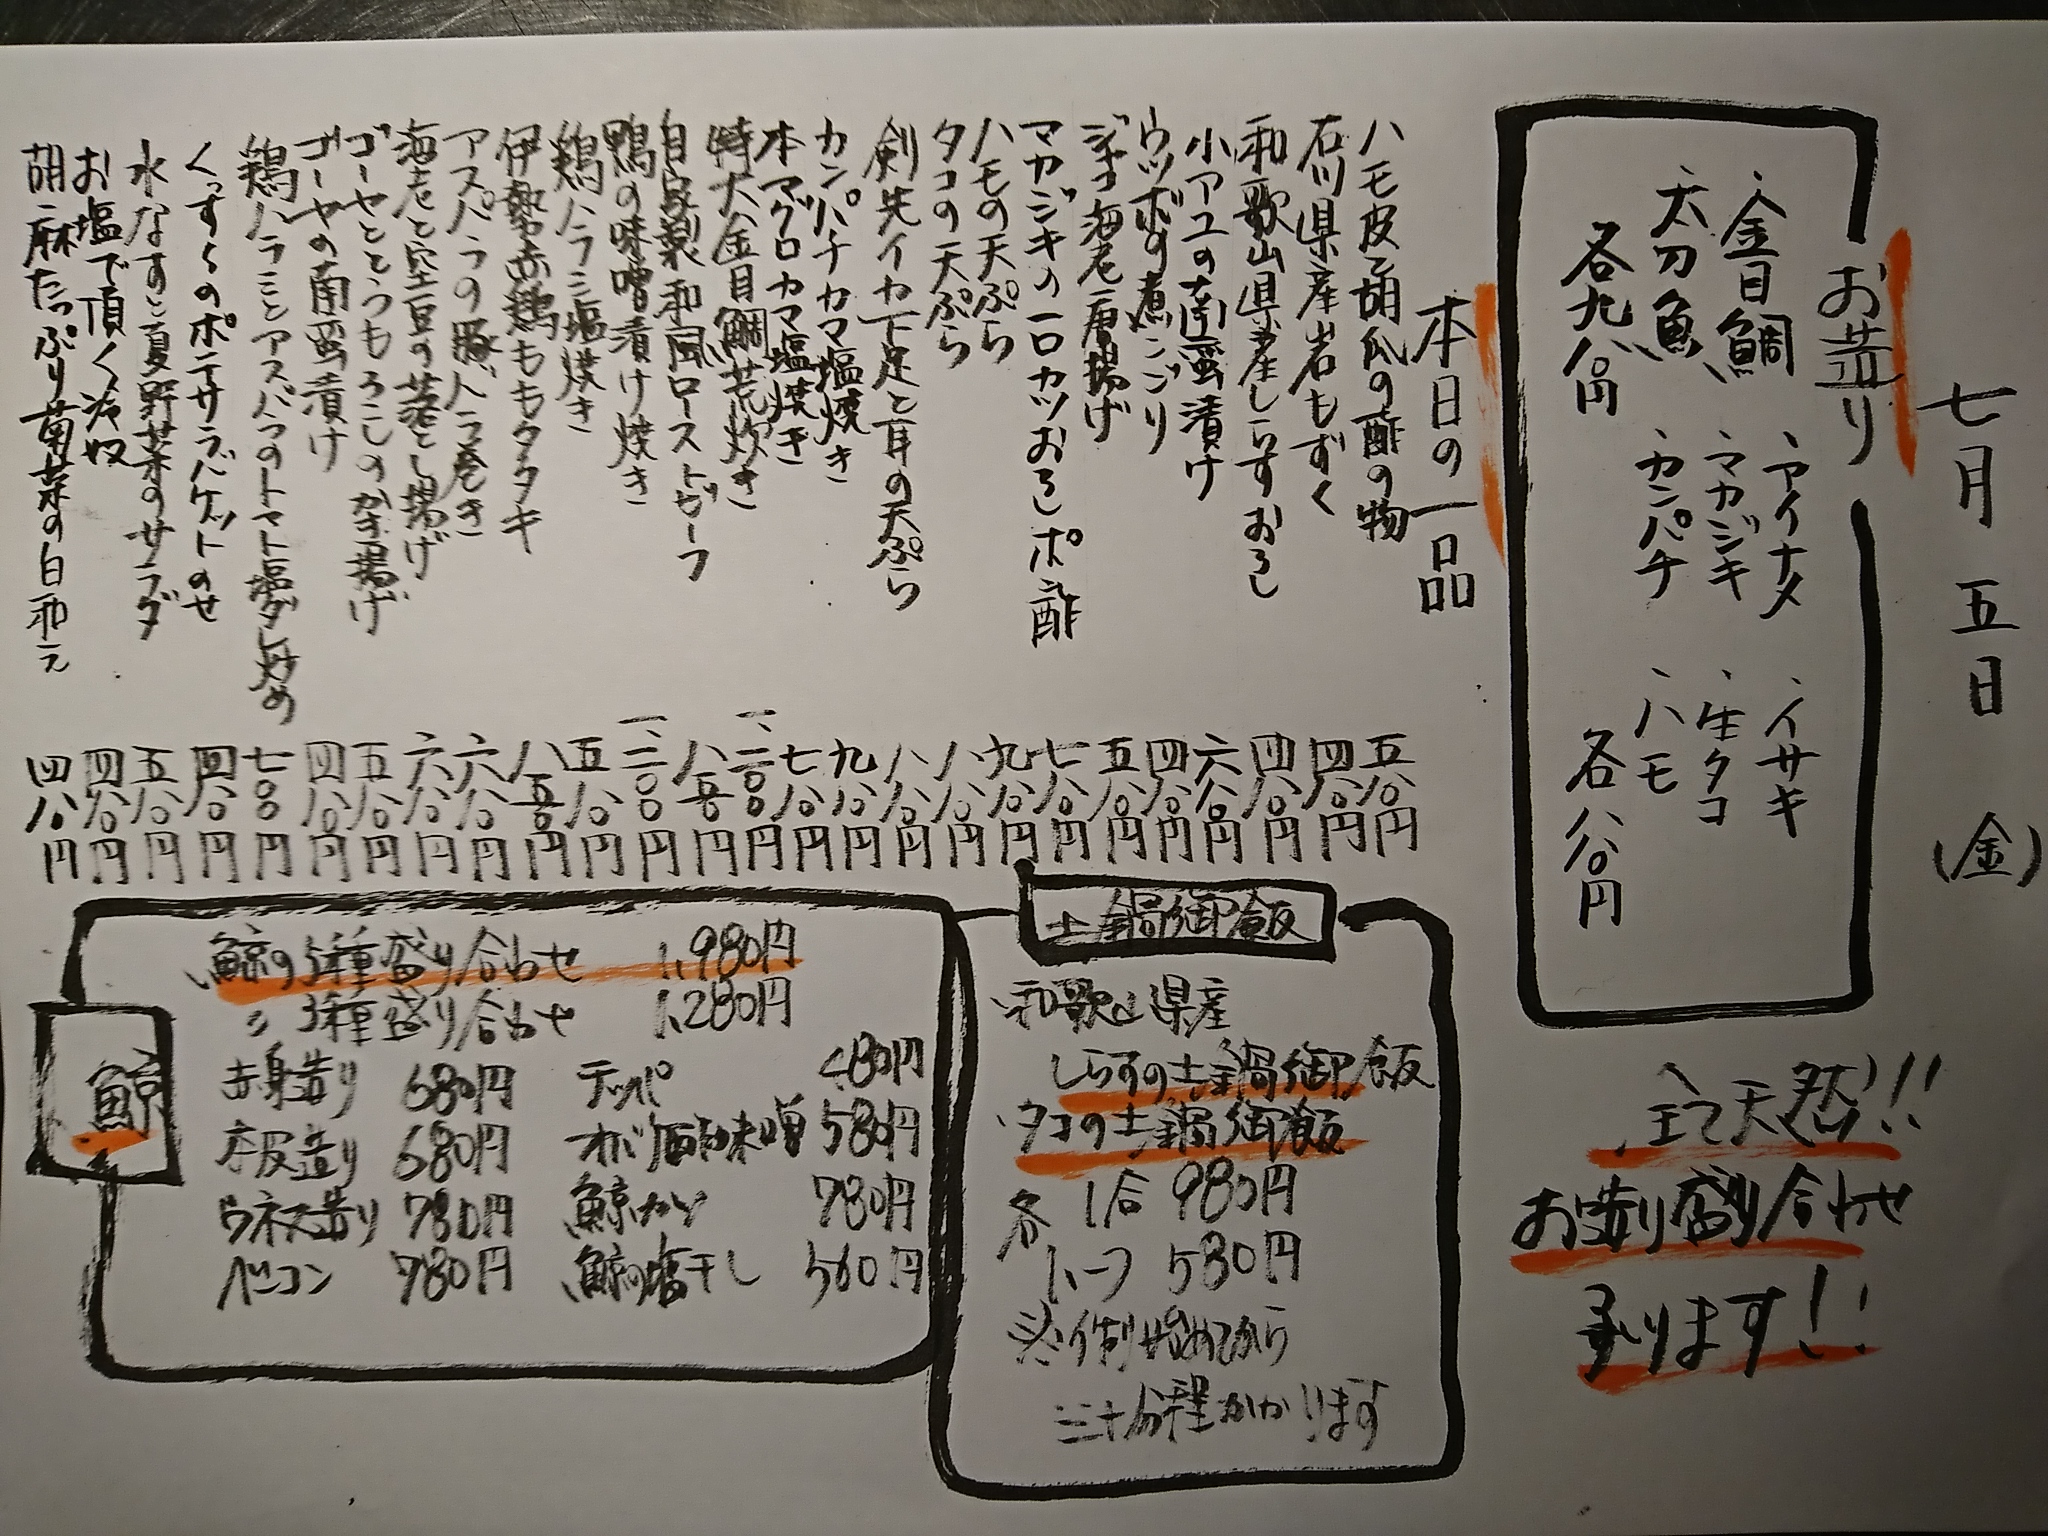 七月五日(金)
お造り
、アイナメ
、イサキ
、金目鯛
、マカジキ
、生タコ
、太刀魚
、カンパチ
、ハモ
各九八〇円
各八八〇円
全て天然!!
お造り盛り合わせ
承ります!!
本日の一品
ハモ皮と胡瓜の酢の物 五八〇円
石川県産岩もずく 四八〇円
和歌山県産しらすおろし 四八〇円
小アユの南蛮漬け 六八〇円
ウツボの煮こごり 四八〇円
ジャコ海老唐揚げ 五八〇円
マカジキの一口カツおろしポン酢 七八〇円
ハモの天ぷら 九八〇円
タコの天ぷら 八八〇円
剣先イカ下足と耳の天ぷら 八八〇円
カンパチカマ塩焼き 九八〇円
本マグロカマ塩焼き 七八〇円
特大金目鯛荒炊き
自家製和風ローストビーフ 八五〇円
鴨の味噌漬け焼き
鶏ハラミ塩焼き 五八〇円
伊勢赤鶏ももタタキ 八五〇円
アスパラの豚バラ巻き 六八〇円
海老と空豆の落とし揚げ 六八〇円
ゴーヤととうもろこしのかき揚げ 五八〇円
ゴーヤの南蛮漬け 四八〇円
鶏ハラミとアスパラのトマト塩ダレ炒め 七〇〇円
くずくのポテサラバケットのせ 四八〇円
水なすと夏野菜のサラダ 五八〇円
お塩で頂く冷奴 四八〇円
胡麻たっぷり菊菜の白和え 四八〇円
土鍋御飯
、和歌山県産
しらすの土鍋御飯
、タコの土鍋御飯
各 1合 980円
ハーフ 530円
※炊き始めてから
三十分程かかります
鯨
、鯨の5種盛り合わせ 1,980円
〃 3種盛り合わせ 1,280円
赤身造り 680円
本皮造り 680円
ウネス造り 780円
ベーコン 780円
テッパ 480円
オバ酢味噌 580円
鯨カツ 780円
鯨の塩干し 560円